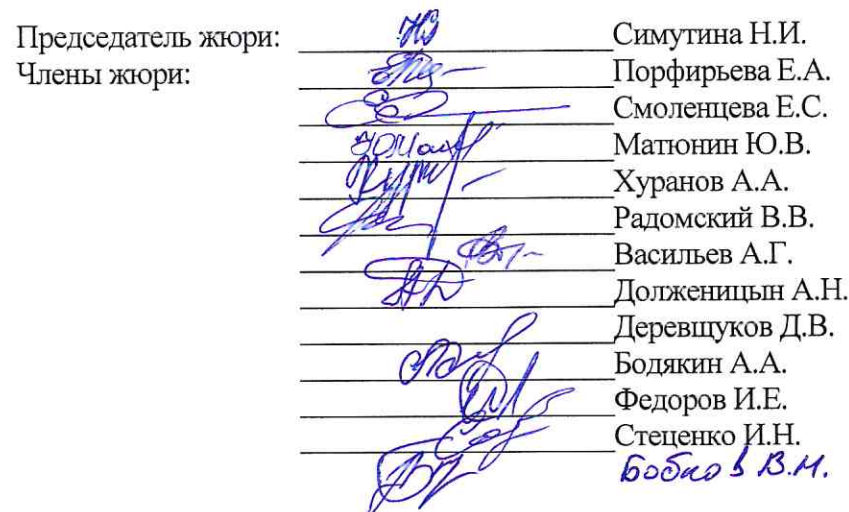 Председатель жюри: Симутина Н.И.
Члены жюри: Порфирьева Е.А.
Смоленцева Е.С.
Матюнин Ю.В.
Хуранов А.А.
Радомский В.В.
Васильев А.Г.
Долженицын А.Н.
Деревщуков Д.В.
Бодякин А.А.
Федоров И.Е.
Стеценко И.Н.
Бобков В.М.